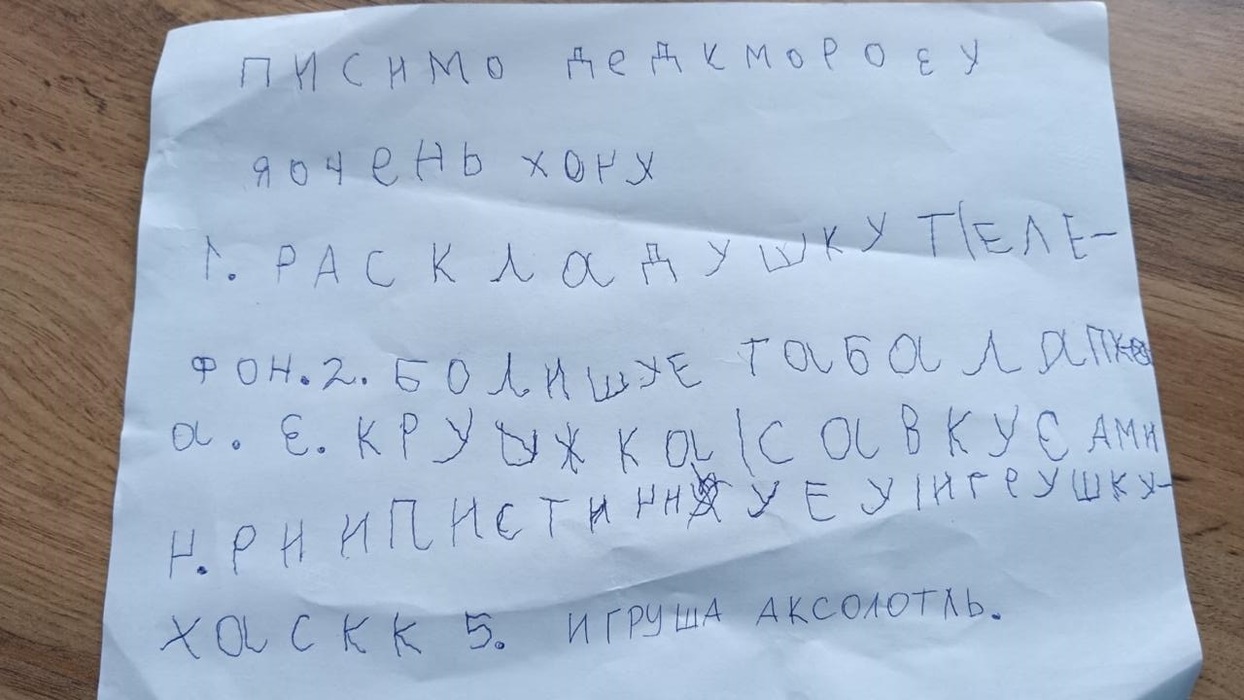 ПИСИМО ДЕДКМОРОЗУ
Я ОЧЕНЬ ХОЧУ
1. РАСКЛАДУШКУ ТЕЛЕ-
ФОН. 2. БОЛИШУЕ ТАБАЛАПК
А. 3. КРУЖКА С АВКУСАМИ
Ч. РНИПИСТИНН УЕУ ИГРУШКУ-
ХАСКК 5. ИГРУША АКСОЛОТЛЬ.